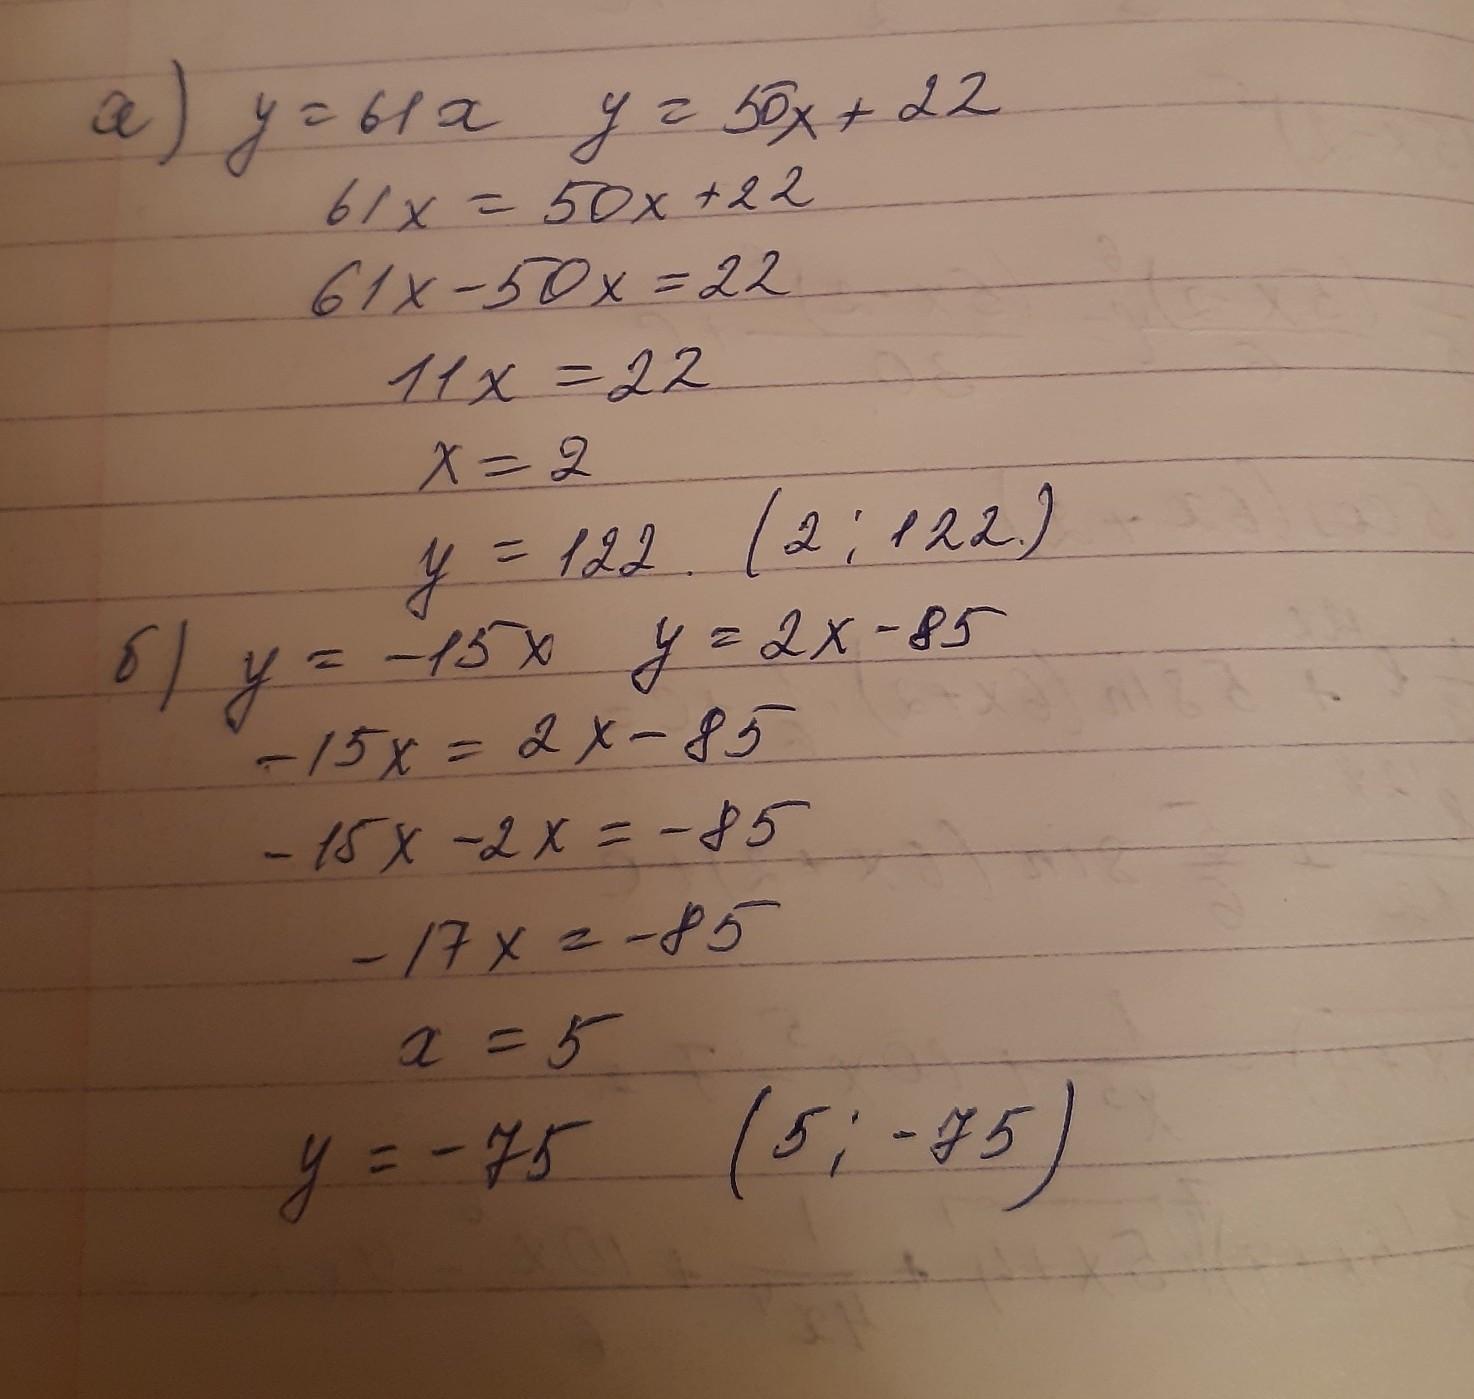 а) y = 61x y = 50x + 22
61x = 50x + 22
61x - 50x = 22
11x = 22
x = 2
y = 122. (2; 122.)
б) y = -15x y = 2x - 85
-15x = 2x - 85
-15x - 2x = -85
-17x = -85
x = 5
y = -75 (5; -75)